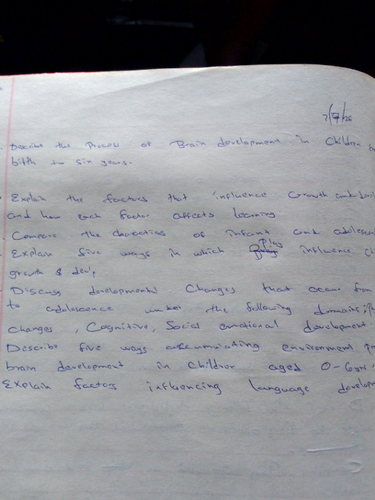 2/7/20
Describe the Process of Brain development in Children
birth to six years.
Explain the factors that influence Growth and
and how each factor affects learning
Compare the characteristics of infant and
Explain five ways in which Play influence
growth & dev,
Discuss developmental Changes that occur from
to adolescence under the following domains;
Changes, Cognitive, Social emotional development.
Describe five ways a environment
brain development in Children aged 0-6
Explain factors influencing language